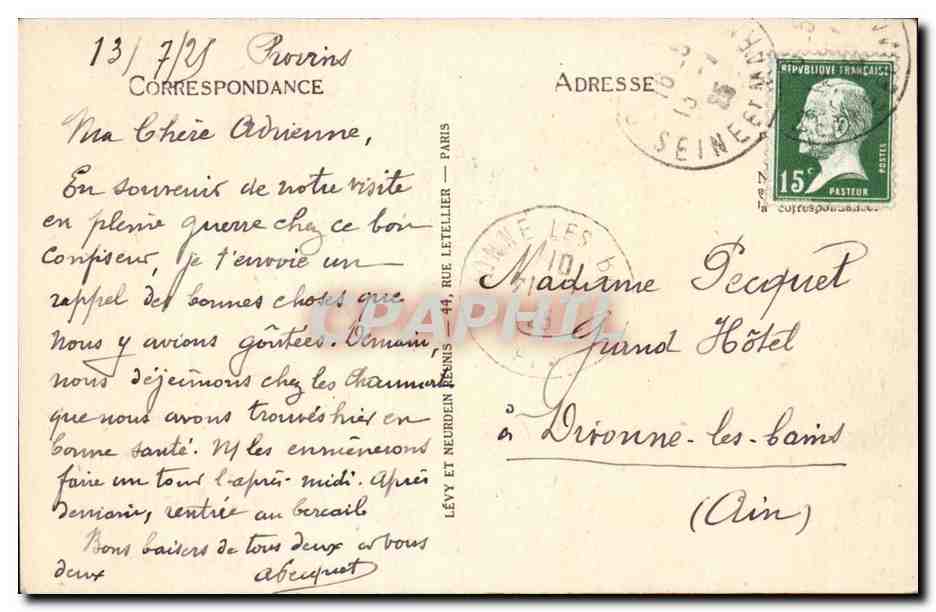 13/7/25 Provins
CORRESPONDANCE
Ma Chère Adrienne,
En souvenir de notre visite
en pleine guerre chez ce bon
confiseur, je t'envoie un
rappel des bonnes choses que
nous y avions goûtées. Demain,
nous déjeunons chez les
que nous avons trouvés hier en
bonne santé. Ns les emmènerons
faire un tour l'après-midi. Après
demain, rentrée au bercail
Bons baisers de tous deux à vous
deux APecquet
LÉVY ET NEURDEIN RÉUNIS — 44, RUE LETELLIER — PARIS
ADRESSE
SEINE ET MARNE
REPUBLIQUE FRANÇAISE
POSTES
15c
PASTEUR
la correspondance.
DIVONNE LES B
Madame Pecquet
Grand Hôtel
à Divonne-les-bains
(Ain)
CPAPHIL